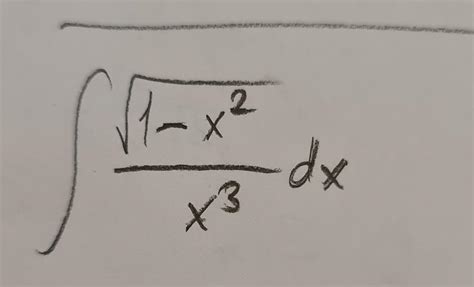 ∫ √(1-x²)/x³ dx